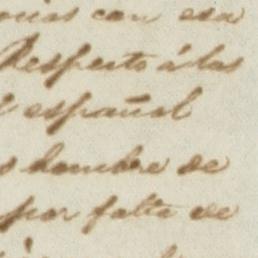 con esa
Respecto á las
español
hombre de
por falta de